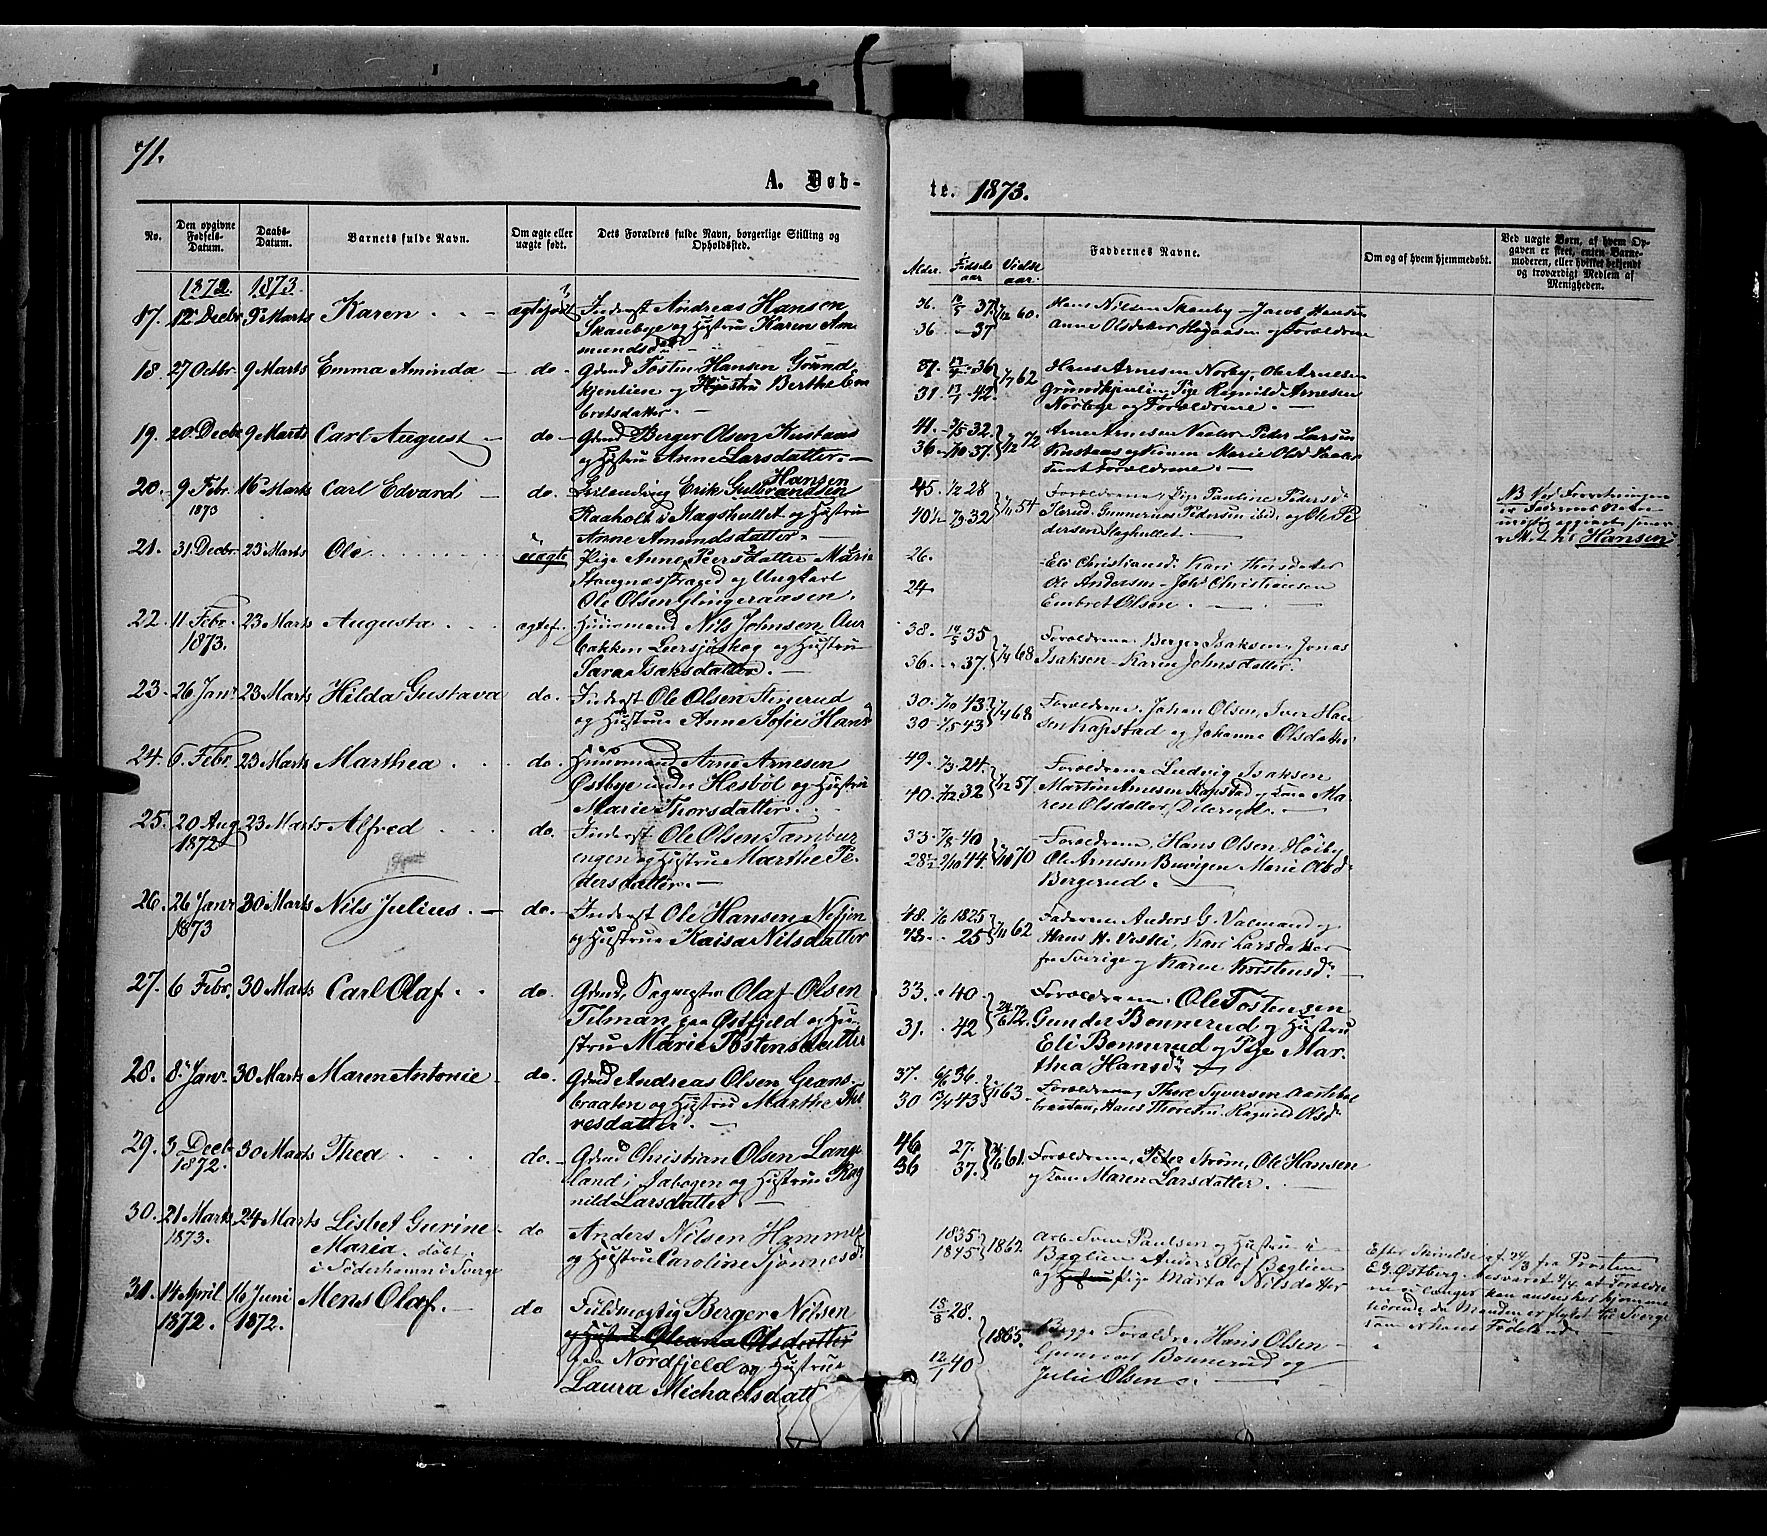 71.
A. Døb-
te. 1873.
No.
Den opgivne Fødsels-Datum.
Daabs-Datum.
Barnets fulde Navn.
Om ægte eller uægte født.
Dets Forældres fulde Navn, borgerlige Stilling og Opholdssted.
Alder.
Fødsels aar
Vielse aar.
Faddernes Navne.
Om og af hvem hjemmedøbt.
Ved uægte Børn, af hvem Op-
gaven er skeet, enten Barne-
moderen, eller hvilket bekjendt
og troværdigt Medlem af
Menigheden.
1872. 1873.
17. 12 Decbr 9 Marts Karen ægtefødt Inderst Andreas Hansen
Skaubye og Hustru Karen Am-
mundsdatter
36. 37 60. Hans Nilsen Skauby Jacob Hansen
36 - 37 Anne Olsdatter og Forældrene
18. 27 Octbr. 9 Marts Emma Aminda do. Gbrmd Tosten Hansen Grund-
kjenlien og Hustru Berthe Em-
bretsdatter.
37. 36 62 Hans Arnesen Norby, Ole Arnesen
31. 42. Pige Ragnild Arnesen
Norbye og Forældrene.
19. 20 Decbr 9 Marts Carl August do Gbrmd Berger Olsen Kustaas
og Hustru Anne Larsdatter.
41. 32. 72 Arne Arnesen Peder Larsen
36 37. Kustaas og Konen Marie
samt Forældrene.
20. 9 Febr. 1873 16 Marts Carl Edvard do. Leilending Erik Gulbrandsen Hansen
Raaholt i Magshullet og Hustru
Anne Amundsdatter.
45. 1/2 28 54 Forældrene, Pige Pauline Pedersd
40 1/2 32 Gunnerius Pedersen ibid. og Ole Pe-
dersen Maghullet.
NB Ved
er Faderens Navn
Hansen
21. 31 Decbr. 23 Marts Ole uægte Pige Anne Peersdatter Marie
og Ungkarl
Ole Olsen Slingeraasen.
26. Eli Christiansd. Kari Thorsdatter
24 Ole Andersen Joh. Christiansen
Embret Olsen.
22. 11 Febr. 1873. 23 Marts Augusta ægtef. Huusmand Nils Johnsen Aur-
bakken Leersjøskog og Hustru
Sara Isaksdatter.
38. 35 68 Forældrene, Berger Isaksen, Jonas
36. 37. Isaksen Karen Johnsdatter.
23. 26 Janr 23 Marts Hilda Gustava do. Inderst Ole Olsen Stinerud
og Hustrue Anne Sofie Hansd
30. 43 68 Forældrene, Johan Olsen, Iver Han-
30. 43 sen Kapstad og Johanne Olsdatter.
24. 6 Febr. 23 Marts Marthea do. Huusmand Arne Arnesen
Østbye under Hesbøl og Hustru
Marie Thorsdatter.
49. 24. 57 Forældrene Ludvig Isaksen
40. 32 Martin Arnesen Kapstad og Kone Ma-
ren Olsdatter
25. 20 Aug 1872 23 Marts Alfred do. Inderst Ole Olsen Tambur
engen og Hustru Marthe Pe-
dersdatter.
33. 40 70 Forældrene, Hans Olsen Høiby
28 1/2 44. Ole Arnesen Buvigen Marie Olsd.
Bergerud.
26. 26 Janr 1873 30 Marts Nils Julius. do. Inderst Ole Hansen Nesjen
og Hustrue Kaisa Nilsdatter
48. 1825 62 Faderen Anders G. Valmand og
25 Hans H. Viski, Kari Larsdatter
fra Sverige og Karen Kristensd.
27. 6 Febr. 30 Marts Carl Olaf. do. Gbrmd, Sagmester Olaf Olsen
Tilman, paa Østfjeld og Hu-
stru Marie Tostensdatter
33. 40 72. Forældrene. Ole Tostensen
31. 42 Gunder Bonnerud og Hustru
Eli Bonnerud og Pige Mar-
thea Hansd
28. 8 Janr. 30 Marts Maren Antonie do. Gbrmd Andreas Olsen Grans-
braaten og Hustru Marthe Tho-
resdatter.
37. 36. 63 Forældrene, Thore Syversen
30 43 braatan, Hans Thoresen Ragnild Olsd
29. 3 Decbr 1872. 30 Marts Thea do. Gbrmd Christian Olsen Lange-
land i Jabogen og Hustrue Rag-
nild Larsdatter
46 27. 61. Forældrene, Peder Strøm, Ole Hansen
36 37. og Kone Maren Larsdatter.
30. 21 Marts 1873. 24 Marts Lisbet Gurine
Maria. døbt
i Söderhamn i Sverge do Anders Nilsen Hammer
og Hustrue Caroline Sjønnesdt
1835 1862 Arb. Sven Paulsen og Hustru i
1845 Bæglien Anders Olof Bæglien
og Hustru Pige Marta Nilsdatter
Efter Skrivelse af 24/3 fra Provsten
E. G. Østberg besvaret 2/4 at Forældre
ne ei længer kan ansees hjemme
hörende, da Manden er flytet til Sverge
som er hans Fødeland.
31. 14 April 1872. 16 Juni 1872. Mens Olaf. do Fuldmægtig Berger Nilsen
og Hustru Oleana Olsdatter
paa Nordfjeld og Hustrue
Laura Michaelsdatt
15/8 28. 1865. Begge Forældre, Hans Olsen
12/1 40 Bonnerud og
Julie Olsen.